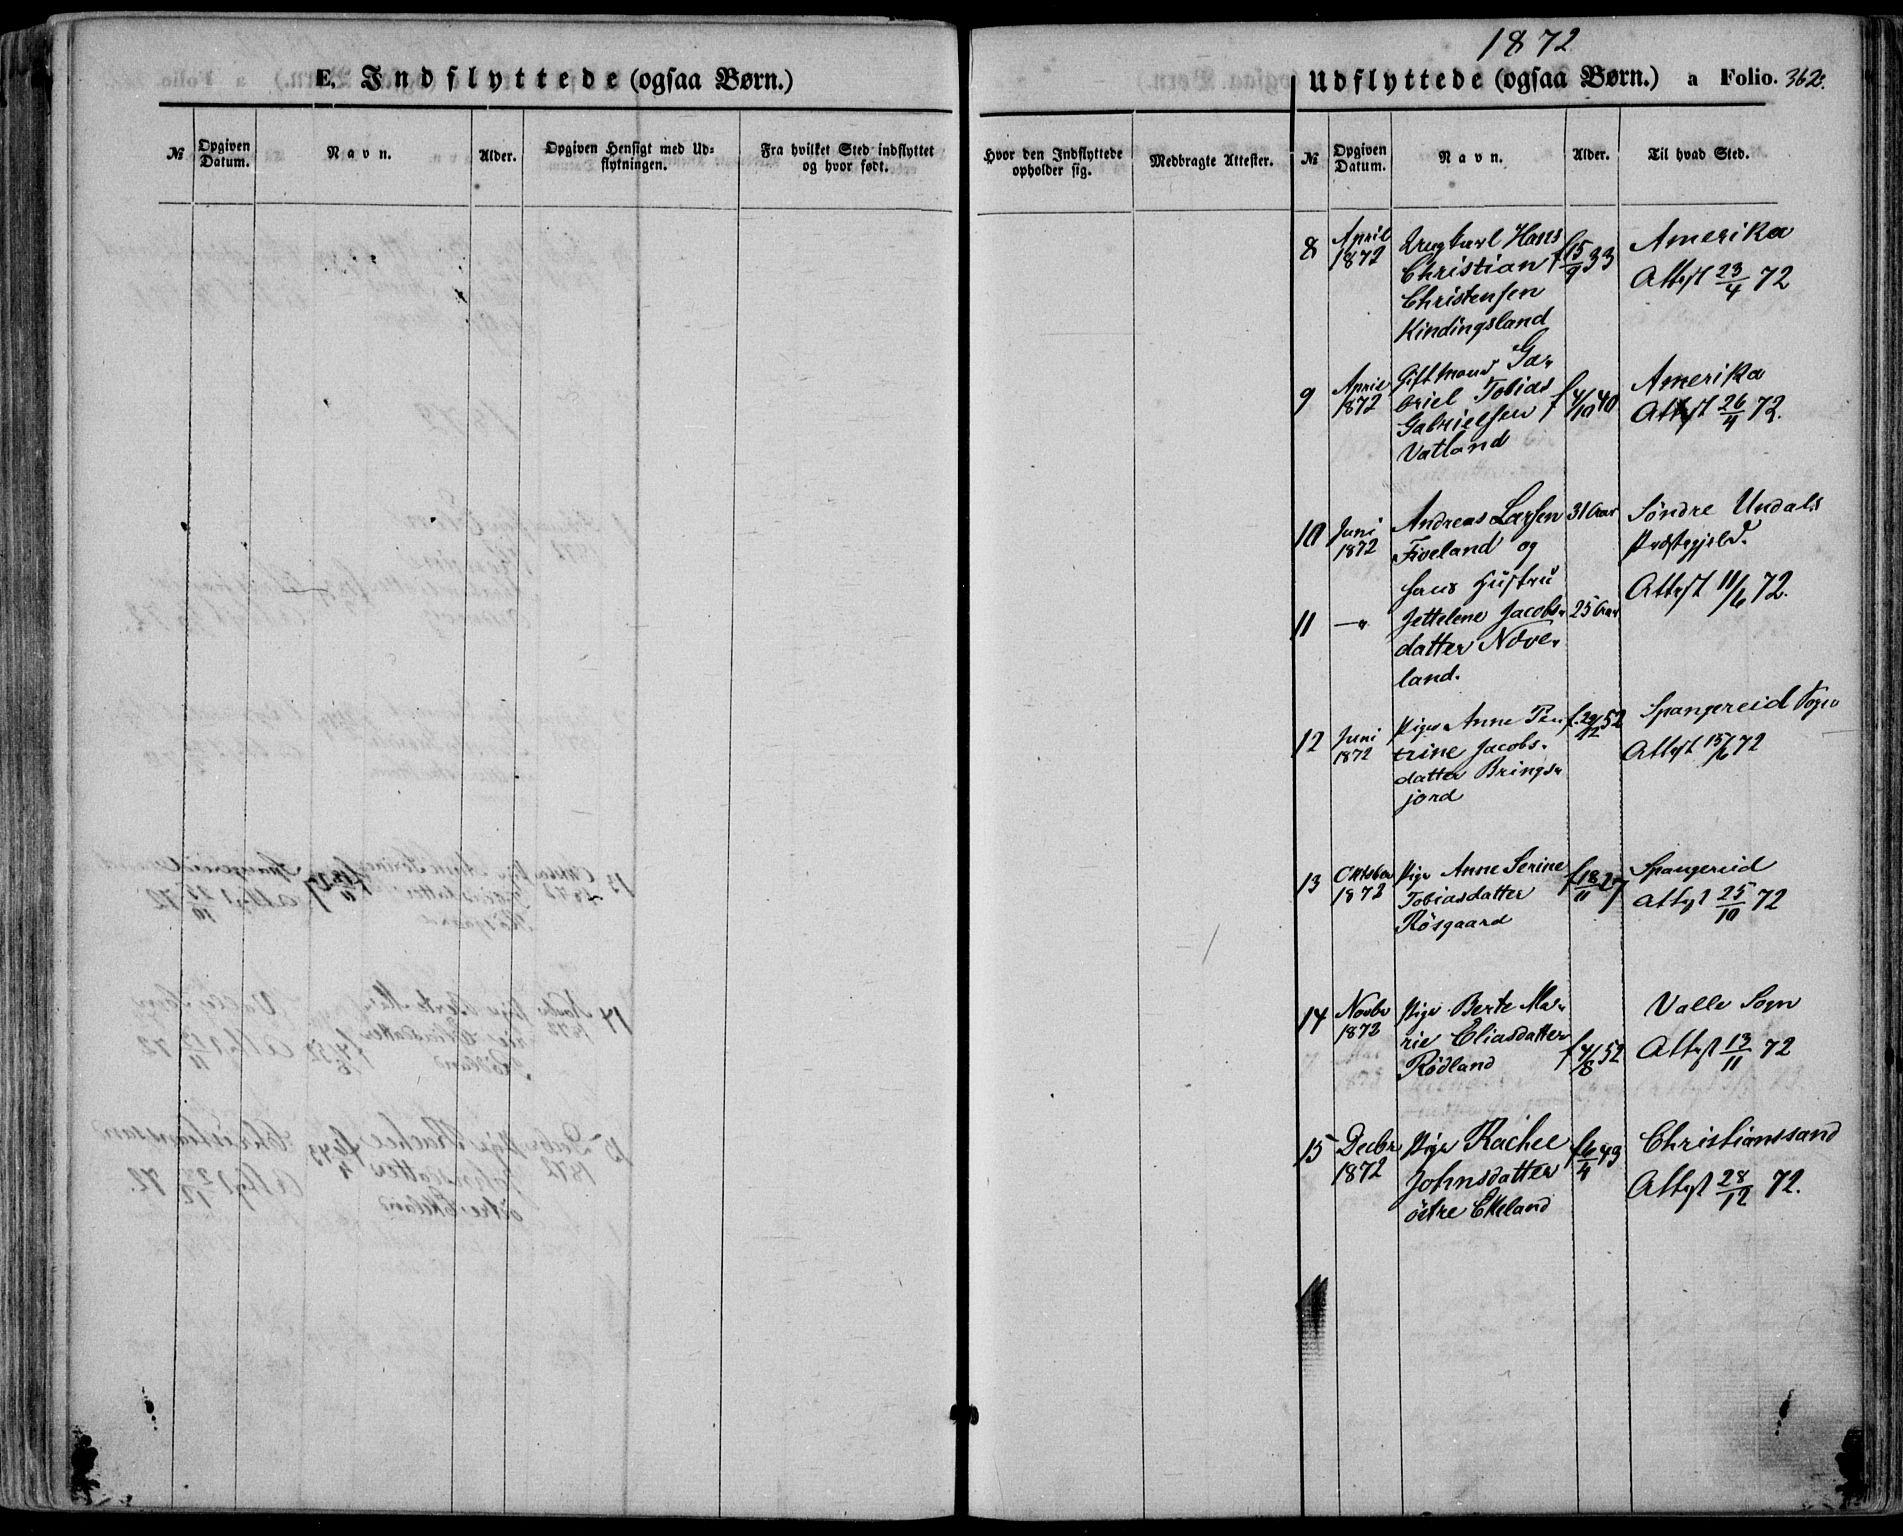 1872
E. Indflyttede (ogsaa Børn.)
Udflyttede (ogsaa Børn.) a Folio. 362.
№ Opgiven Datum. Navn. Alder. Opgiven Hensigt med Udflytningen. Fra hvilket Sted indflyttet og hvor født.
Hvor den Indflyttede opholder sig. Medbragte Attester. № Opgiven Datum. Navn. Alder. Til hvad Sted.
8 April 1872 Ungkarl Hans f 15/9 33 Amerika
Christian Attest 23/4 72
Christensen
Kindingsland
9 April 1872 Gift Mand Ga- f 4/10 40 Amerika
briel Tobias Attest 26/4 72.
Gabrielsen
Vatland
10 Juni 1872 Andreas Larsen 31 Aar Söndre Undals
Fiveland og Præstegjeld.
hans Hustru Attest 11/6 72.
11 —"— Jettelene Jacobs- 25 Aar
datter Növe-
land.
12 Juni 1872 Pige Anne Pe- f. 29/12 52 Spangereid Sogn
trine Jacobs- Attest 15/6 72
datter Brings-
jord
13 Oktober 1872 Pige Anne Serine f 18/11 27 Spangereid
Tobiasdatter Attest 25/10 72
Rösgaard
14 Novbr 1872 Pige Berte Ma- Valle Sogn
rie Eliasdatter f 4/8 52 Attest 13/11 72
Rödland
15 Decbr 1872 Pige Rachel f 6/4 43 Christianssand
Johnsdatter Attest 28/12 72.
östre Ekeland